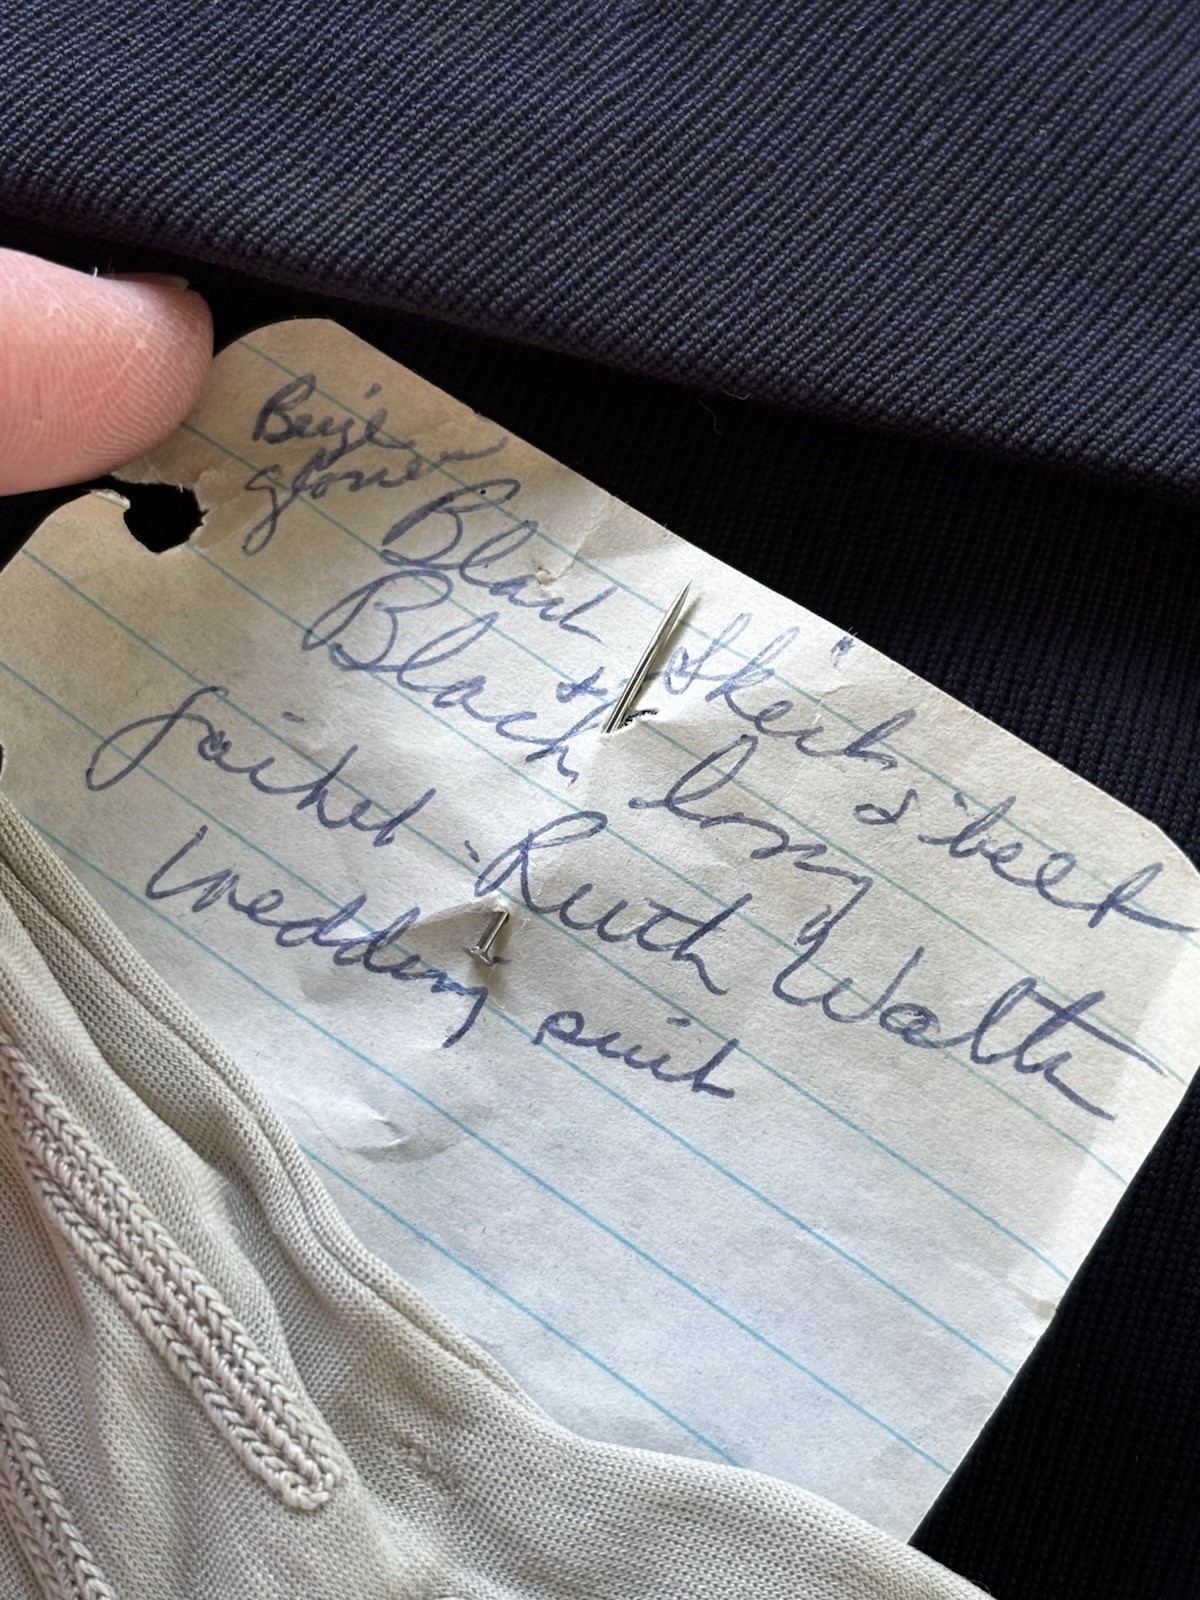 Beige
gloves
Black Skirt & belt
Black & long
jacket - Ruth Walter
Wedding suit